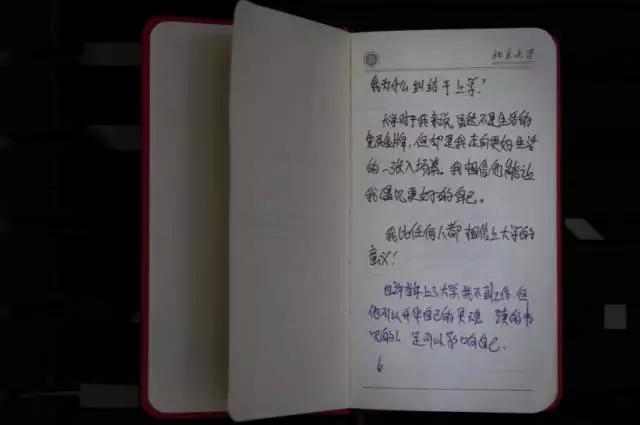 北京大学
我为什么纠结于上学？
大学对于我来说，虽然不是生活的
免死金牌，但却是我走向更好生活
的一张入场券。我相信他能让
我遇见更好的自己。
我比任何人都相信上大学的
意义！
也许当年上了大学，我不到工作，但
他可以升华自己的灵魂，读的书
见的人，是可以影响自己。